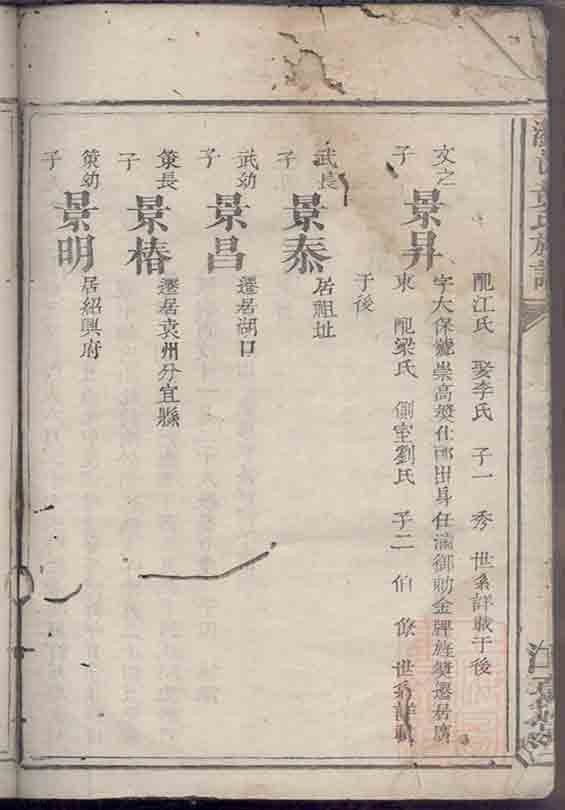 黃氏族譜
配江氏 娶李氏 子一 秀 世系詳載于後
文之子 景昇 字大保號崇高奬仕郎出身任滿御勅金牌旌奬遷居廣
東 配梁氏 側室劉氏 子二 伯 俊 世系詳載
于後
武長子 景泰 居祖址
武幼子 景昌 遷居湖口
策長子 景椿 遷居袁州分宜縣
策幼子 景明 居紹興府
江夏堂